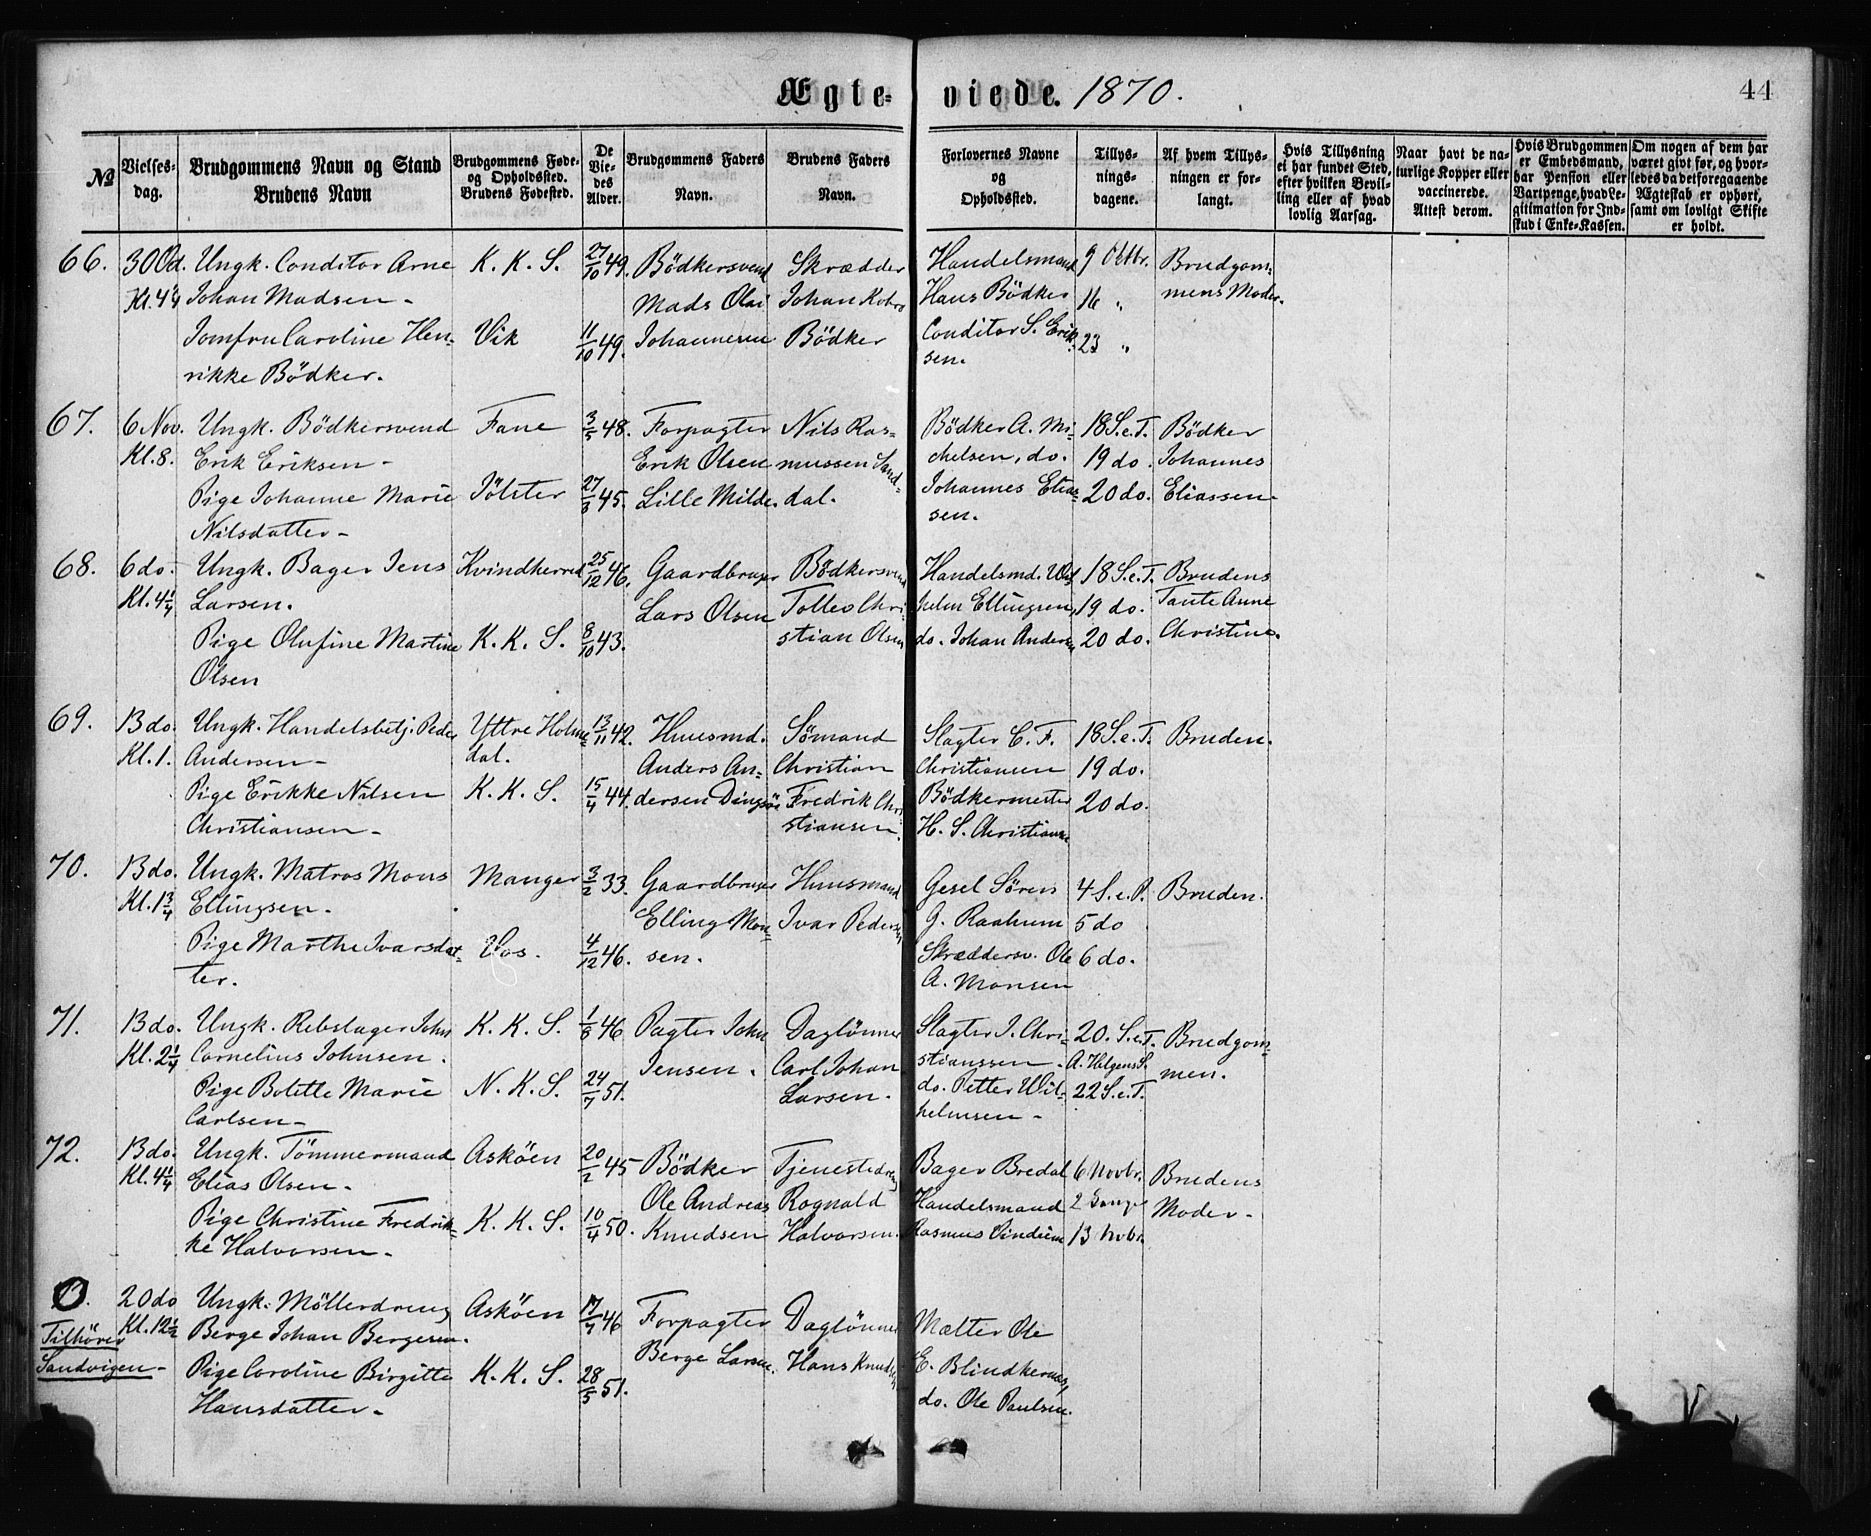 Ægte- viede. 1870.
44
№
Vielses-
dag.
Brudgommens Navn og Stand
Brudens Navn
Brudgommens Føde-
og Opholdssted.
Brudens Fødested.
De
Vie-
des
Alder.
Brudgommens Faders
Navn.
Brudens Faders
Navn.
Forlovernes Navne
og
Opholdssted.
Tillys-
nings-
dagene.
Af hvem Tillys-
ningen er for-
langt.
Hvis Tillysning
ei har fundet Sted,
efter hvilken Bevil-
ling eller af hvad
lovlig Aarsag.
Naar havt de na-
turlige Kopper eller
vaccinerede.
Attest derom.
Hvis Brudgommen
er Embedsmand,
har Pension eller
Vartpenge, hvad Le-
gitimation for Ind-
skud i Enke-Kassen.
Om nogen af dem har
været givt før, og hvor-
ledes da det foregaaende
Ægteskab er ophørt,
samt om lovligt Skifte
er holdt.
66.
30 Od.
Kl. 4¼
Ungk. Conditor Arne
Johan Madsen -
Jomfru Caroline Hen-
rikke Bödker.
K. K. S.
Vik
27/10 49.
11/10 49.
Bödkersvend
Mads Olai
Johannesen
Skrædder
Johan
Bödker
Handelsmand
Hans Bödker
Conditor S. Erik-
sen.
9 Oktbr.
16 "
23 "
Brudgom-
mens Moder.
67.
6 Nov.
Kl. 8.
Ungk. Bödkersvend
Erik Eriksen -
Pige Johanne Marie
Nilsdatter -
Fane
Jölster
3/5 48.
27/3 45.
Forpagter
Erik Olsen
Lille Milde.
Nils Ras-
mussen Sand-
dal.
Bödker A. Mi-
chelsen, do.
Johannes Elias-
sen.
18 S. e. T.
19 do.
20 do.
Bödker
Johannes
Eliassen
68.
6 do.
Kl. 4¼
Ungk. Bager Jens
Larsen.
Pige Olufine Martine
Olsen
Kvindherred
K. K. S.
25/12 46.
8/10 43.
Gaardbruger
Lars Olsen
Bödkersvend
Tolleo Chri-
stian Olsen
Handelsmd. Wil-
helm Ellingsen,
do. Johan Andersen
18 S. e. T.
19 do.
20 do.
Brudens
Tante Anne
Christine.
69.
13 do.
Kl. 1.
Ungk. Handelsbetj. Peder
Andersen -
Pige Erikke Nilsen
Christiansen -
Yttre Holme-
dal.
K. K. S.
13/11 42.
15/4 44.
Huusmd.
Anders An-
dersen Dingsöe
Sömand
Christian
Fredrik Chri-
stiansen.
Slagter C. F.
Christiansen
Bödkermester
H. S. Christiansen
18 S. e. T.
19 do.
20 do.
Bruden.
70.
13 do.
Kl. 1¾
Ungk. Matros Mons
Ellingsen.
Pige Marthe Ivarsdat-
ter.
Manger
Vos.
3/2 33.
4/12 46.
Gaardbruger
Elling Mon-
sen.
Huusmand
Ivar Pedersen
Gesel Sörens
G. Raahum
Skræddersv. Ole
A. Monsen
4 S. e. P.
5 do
6 do.
Bruden.
71.
13 do.
Kl. 2¼
Ungk. Rebslager John
Cornelius Johnsen.
Pige Bolette Marie
Carlsen -
K. K. S.
N. K. S.
1/8 46
24/7 51.
Pagter John
Jensen.
Daglönner
Carl Johan
Larsen.
Slagter J. Chri-
stianssen.
do. Petter Wil-
helmsen -
20. S. e. T.
A. Helgens S.
22 S. e. T.
Brudgom-
men.
72.
13 do.
Kl. 4¼
Ungk. Tömmermand
Elias Olsen -
Pige Christine Fredrik-
ke Halvorsen -
Asköen
K. K. S.
20/2 45
10/4 50.
Bödker
Ole Andreas
Knudsen
Tjenestedreng
Rognald
Halvorsen.
Bager Bredal
Handelsmand
Rasmus Vindum
6 Novbr.
2 Gange
13 Novbr.
Brudens
Moder -
Tilhörer
Sandvigen -
20 do
Kl. 12½
Ungk. Möllerdreng
Berge Johan Bergesen.
Pige Caroline Birgitte
Hansdatter -
Asköen
K. K. S.
17/7 46
28/5 51.
Forpagter
Berge Larsen.
Daglönner
Hans Knudsen
Mælter Ole
E. Blindkernæs,
do. Ole Paulsen.